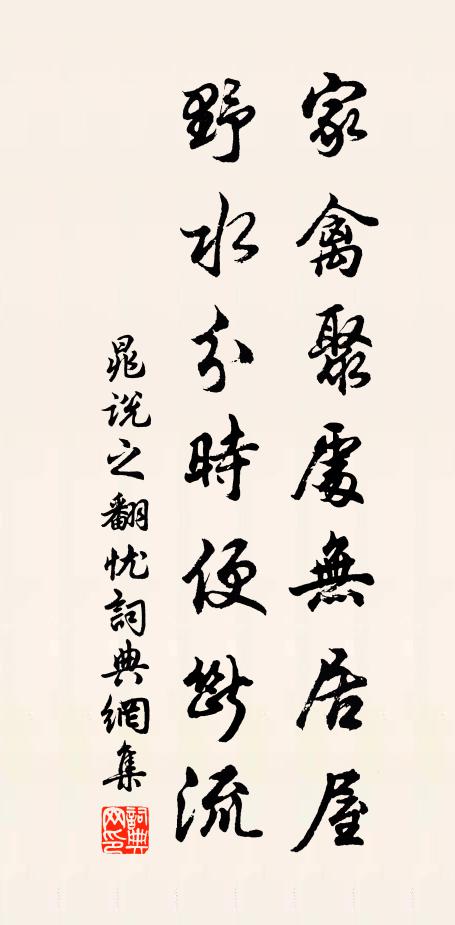 家禽聚處無居屋
野水分時便斷流
晁說之翻忧詞典網集
詞典網印